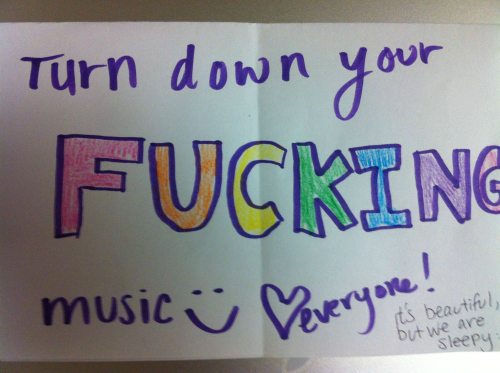 Turn down your
FUCKING
music :) ♡everyone!
it's beautiful,
but we are
sleepy.